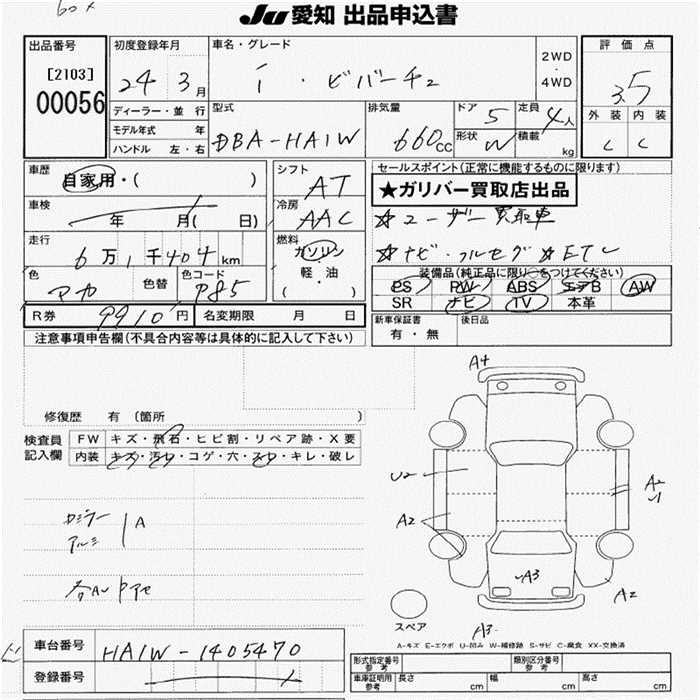 JU 愛知 出品申込書
出品番号
[2103]
00056
初度登録年月
24 3月
ディーラー・並行
モデル年式 年
ハンドル 左・右
車名・グレード
i・ビバーチェ
2WD
・
4WD
評価点
3.5
外装 内装
C C
型式
DBA-HA1W
排気量
660cc
ドア
5
定員
4人
形状
W
積載
kg
車歴
自家用・( )
車検
年 月( 日)
走行
6万1千404km
色
アカ
色替
色コード
P85
シフト
AT
冷房
AAC
燃料
ガソリン
軽・油
( )
セールスポイント(正常に機能するものに限ります)
★ガリバー買取店出品
☆ユーザー買取車
☆ナビ・フルセグ ☆ETC
装備品(純正品に限り○をつけてください)
PS PW ABS エアB AW
SR ナビ TV 本革
R券 9910円
名変期限 月 日
新車保証書
有・無
後日品
注意事項申告欄(不具合内容等は具体的に記入して下さい)
修復歴 有 〔箇所 〕
検査員
記入欄
FW キズ・飛石・ヒビ割・リペア跡・X要
内装 キズ・汚レ・コゲ・穴・スレ・キレ・破レ
A4
U2
A2
A2
A3
A2
A3
アルミ
A
スペア
A-キズ E-エクボ U-凹み W-補修跡 S-サビ C-腐食 XX-交換済
車台番号 HA1W-1405470
登録番号
形式指定番号
参考
類別区分番号
参考
車庫証明用
参考
長さ cm 幅 cm 高さ cm